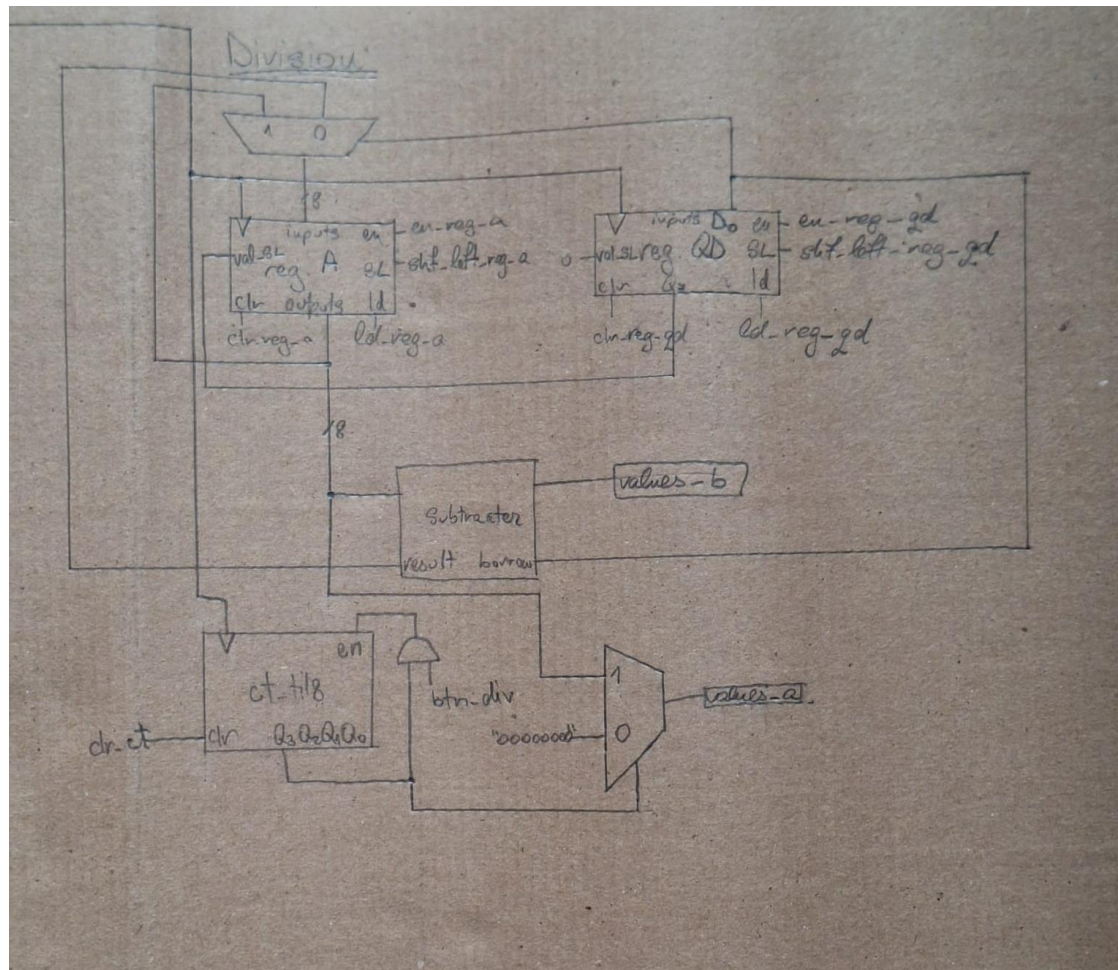 Division
1 0
8
inputs en
val_SL
reg A SL
clr outputs ld
en-reg-a
shf_left_reg-a
clr-reg-a
ld_reg-a
inputs D₀ en
0
val_SL reg QD SL
clr ld
en-reg-qd
shf_left-reg-qd
clr-reg-qd
ld-reg-qd
8
subtracter
result borrow
values-b
en
ct_til8
clr Q₃Q₂Q₁Q₀
clr_ct
btn-div
1
"00000000"
0
values-a